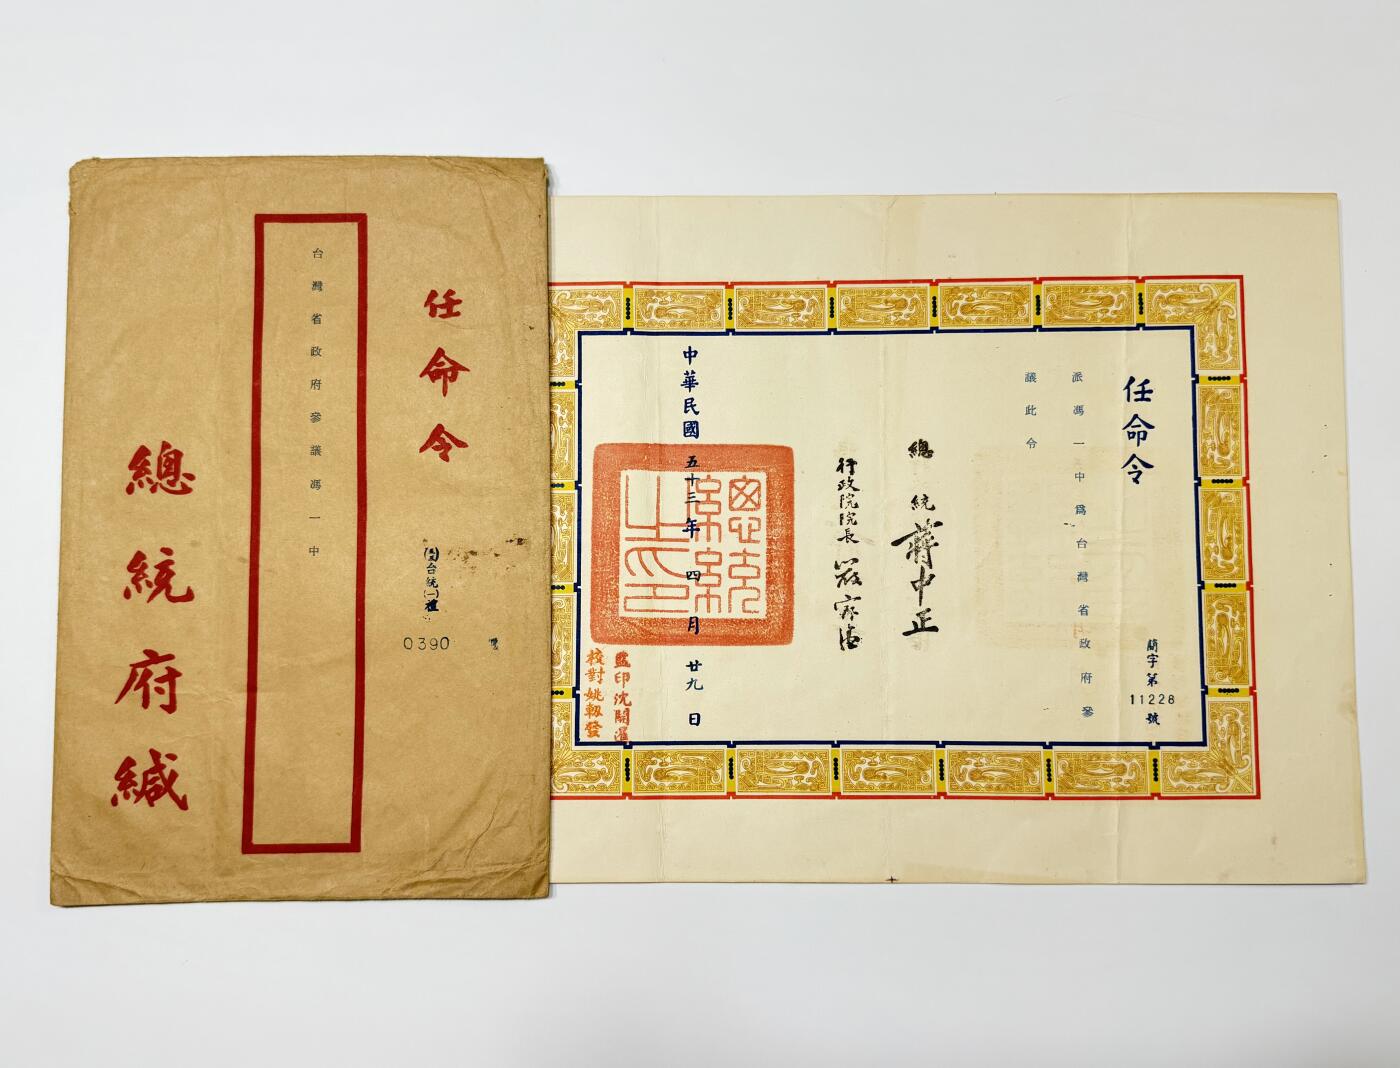 任命令
台灣省政府參議馮一中
總統府緘
台統㈠禮
0390
任命令
派馮一中爲台灣省政府參
議此令
簡字第
11228
號
總統 蔣中正
行政院院長 嚴家淦
中華民國五十三年四月廿九日
總統之印
監印沈開濯
校對姚軔發